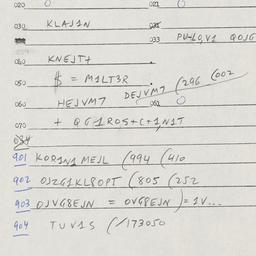 020 0 021 0
030 KLAJ1N
033 PU4LQ,V1 QOJG
040 KNEJT+
050 $ = M1LT3R (296 (002
060 HEJVM7 DEJVM7 061 0
070 + QG1ROS+C+1,N1T
084
901 KOR1N1 MEJL (994 (410
902 OJZG1KL8OPT (805 (252
903 OJVG8EJN = OVG8EJN )= 1V...
904 TUV1S (/173050